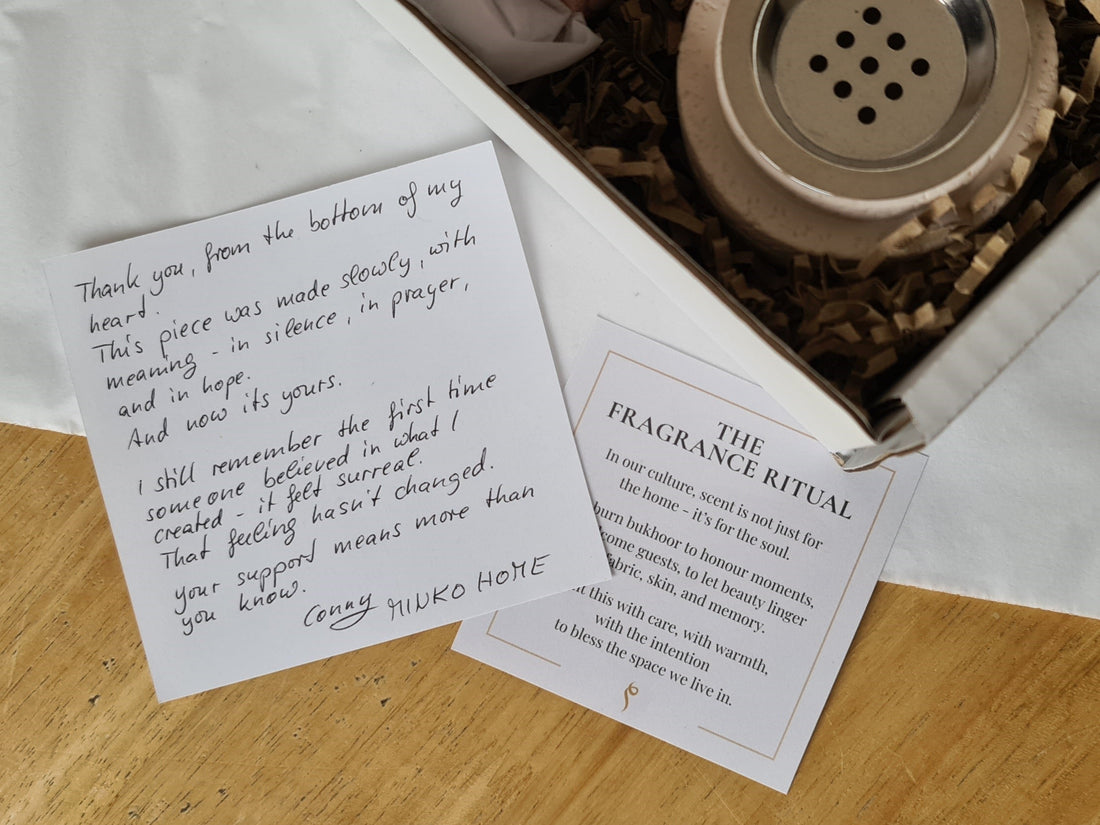 Thank you, from the bottom of my
heart.
This piece was made slowly, with
meaning - in silence, in prayer,
and in hope.
And now its yours.
I still remember the first time
someone believed in what I
created - it felt surreal.
That feeling hasn't changed.
your support means more than
you know.
Conny MINKO HOME
THE
FRAGRANCE RITUAL
In our culture, scent is not just for
the home – it's for the soul.
burn bukhoor to honour moments,
guests, to let beauty linger
fabric, skin, and memory.
this with care, with warmth,
with the intention
to bless the space we live in.